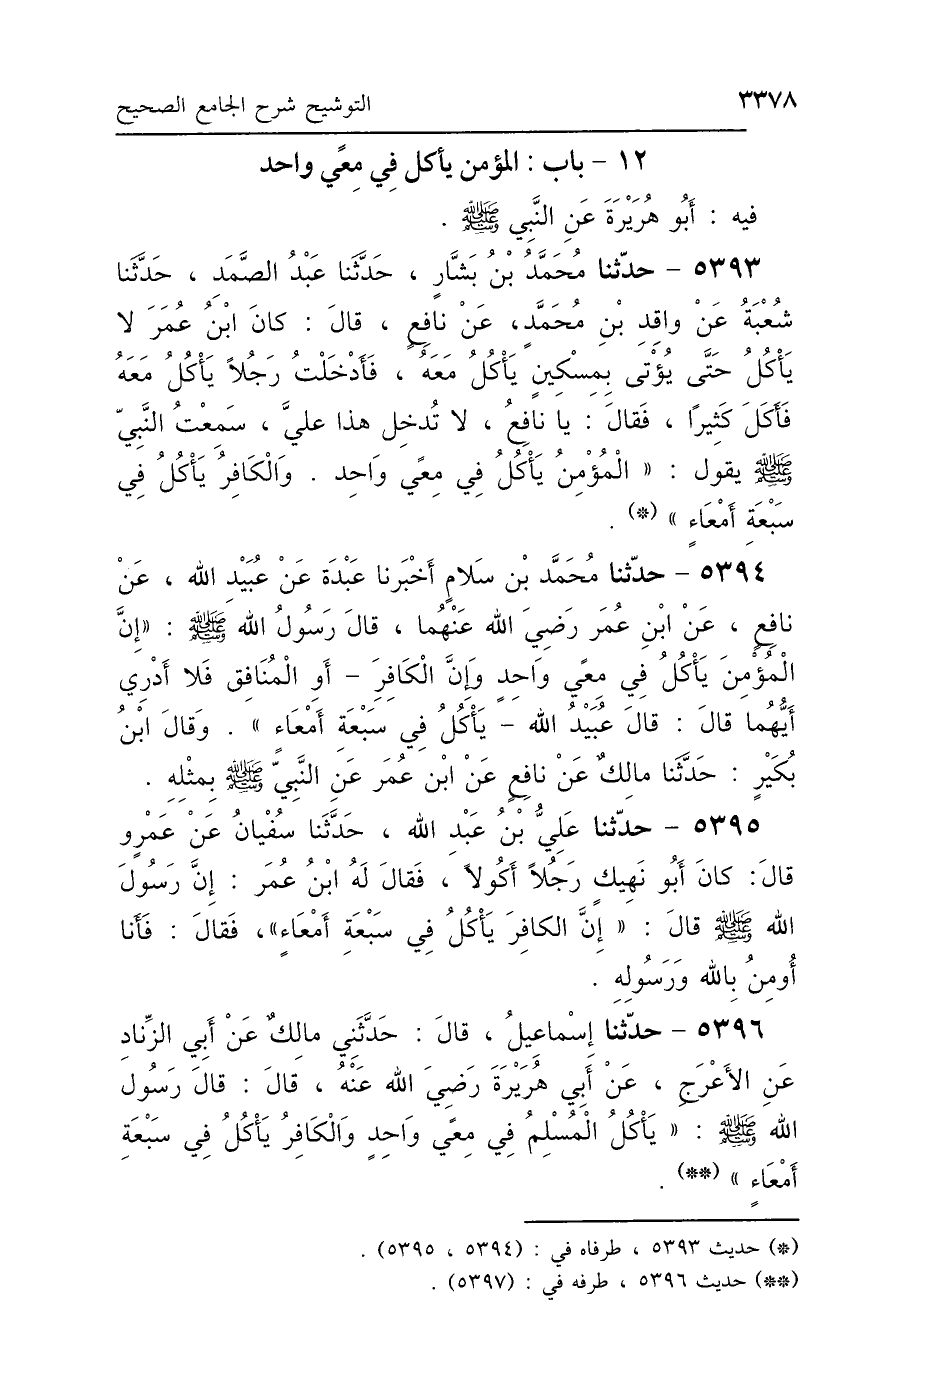 ٣٣٧٨ التوشيح شرح الجامع الصحيح
١٢ - باب : المؤمن يأكل فِي مِعًي واحد
فيه : أَبُو هُرَيْرَةَ عَنِ النَّبِي ﷺ .
٥٣٩٣ - حدّثنا مُحَمَّدُ بْنُ بَشَّارٍ ، حَدَّثَنا عَبْدُ الصَّمَدِ ، حَدَّثَنا
شُعْبَةُ عَنْ واقِدِ بْنِ مُحَمَّدٍ، عَنْ نافِعٍ ، قالَ : كانَ ابْنُ عُمَرَ لا
يَأْكُلُ حَتَّى يُؤْتى بِمِسْكِينٍ يَأْكُلُ مَعَهُ ، فَأَدْخَلْتُ رَجُلاً يَأْكُلُ مَعَهُ
فَأَكَلَ كَثِيرًا ، فَقالَ : يا نافِعُ ، لا تُدخِل هذا عليَّ ، سَمِعْتُ النَّبِيّ
ﷺ يقول : « الْمُؤْمِنُ يَأْكُلُ فِي مِعًي وَاحِد . وَالْكَافِرُ يَأْكُلُ فِي
سَبْعَةِ أَمْعَاءٍ » (*) .
٥٣٩٤ - حدّثنا مُحَمَّد بْن سَلامٍ أَخْبَرنا عَبْدَة عَنْ عُبَيْدِ الله ، عَنْ
نافِعٍ ، عَنْ ابْنِ عُمَر رَضِيَ الله عَنْهُما ، قالَ رَسُولُ الله ﷺ : «إنَّ
الْمُؤْمِنَ يَأْكُلُ فِي مِعًي وَاحِدٍ وَإِنَّ الْكَافِرَ - أو الْمُنَافِق فَلا أَدْرِي
أَيُّهُما قالَ : قالَ عُبَيْدُ الله - يَأْكُلُ فِي سَبْعَةِ أَمْعَاءٍ » . وَقالَ ابْنُ
بُكَيْرٍ : حَدَّثَنا مالِكٌ عَنْ نافِعٍ عَنْ ابْن عُمَر عَنِ النَّبِيّ ﷺ بِمثْلِهِ .
٥٣٩٥ - حدّثنا عَلِيُّ بْنُ عَبْدِ الله ، حَدَّثَنا سُفْيانُ عَنْ عَمْرٍو
قالَ: كانَ أَبُو نَهِيكٍ رَجُلاً أَكُولاً ، فَقالَ لَهُ ابْنُ عُمَر : إنَّ رَسُولَ
الله ﷺ قالَ : « إِنَّ الكافِرَ يَأْكُلُ فِي سَبْعَةِ أَمْعَاءٍ»، فَقالَ : فَأَنا
أُومِنُ بِالله وَرَسُولِهِ .
٥٣٩٦ - حدّثنا إِسْماعِيلُ ، قالَ : حَدَّثَنِي مالِكٌ عَنْ أَبِي الزِّنادِ
عَنِ الأَعْرَجِ ، عَنْ أَبِي هُرَيْرَةَ رَضِيَ الله عَنْهُ ، قالَ : قالَ رَسُول
الله ﷺ : « يَأْكُلُ الْمُسْلِمُ فِي مِعًي وَاحِدٍ وَالْكَافِرُ يَأْكُلُ فِي سَبْعَةِ
أَمْعَاءٍ » (**) .
(*) حديث ٥٣٩٣ ، طرفاه في : (٥٣٩٤ ، ٥٣٩٥) .
(**) حديث ٥٣٩٦ ، طرفه في : (٥٣٩٧) .